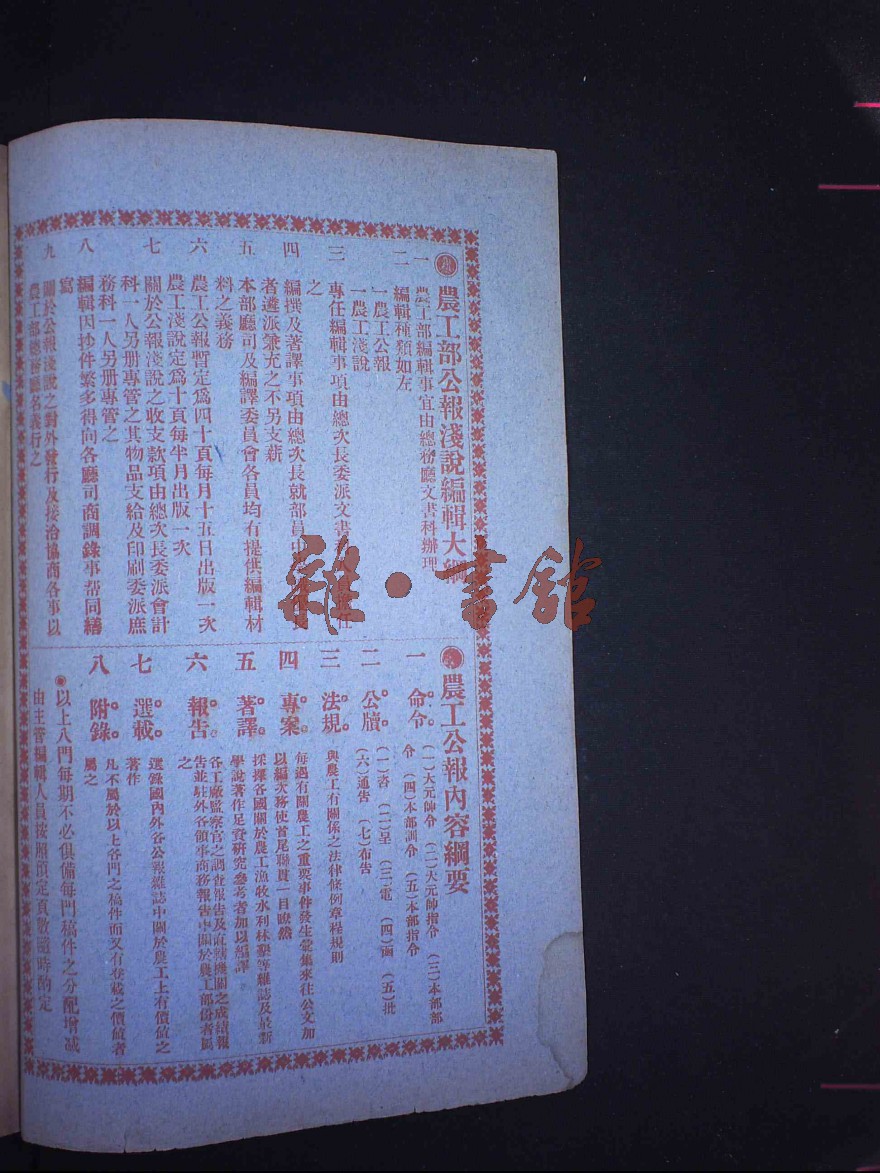 農工部公報淺說編輯大綱
一 農工部編輯事宜由總務廳文書科辦理
二 編輯種類如左
一農工公報
一農工淺說
三 專任編輯事項由總次長委派文書任
之
四 編撰及著譯事項由總次長就部員中長
者遴派兼充之不另支薪
五 本部廳司及編譯委員會各員均有提供編輯材
料之義務
六 農工公報暫定爲四十頁每月十五日出版一次
農工淺說定爲十頁每半月出版一次
七 關於公報淺說之收支款項由總次長委派會計
科一人另册專管之其物品支給及印刷委派庶
務科一人另册專管之
八 編輯因抄件繁多得向各廳司商調錄事帮同繕
寫
九 關於公報淺說之對外發行及接洽協商各事以
農工部總務廳名義行之
農工公報內容綱要
一 命令 (一)大元帥令 (二)大元帥指令 (三)本部部
令 (四)本部訓令 (五)本部指令
二 公牘 (一)咨 (二)呈 (三)電 (四)函 (五)批
(六)通告 (七)布告
三 法規 與農工有關係之法律條例章程規則
四 專案 每遇有關農工之重要事件發生彙集來往公文加
以編次務使首尾聯貫一目暸然
五 著譯 採擇各國關於農工漁牧水利林墾等雜誌及最新
學說著作足資硏究參考者加以編譯
六 報告 各工廠監察官之調查報告及直轄機關之成績報
告並駐外各領事商務報告中關於農工部份者屬
之
七 選載 選錄國內外各公報雜誌中關於農工上有價值之
著作
八 附錄 凡不屬於以上各門之稿件而又有登載之價值者
屬之
以上八門每期不必俱備每門稿件之分配增减
由主管編輯人員按照預定頁數隨時酌定
雜・書館